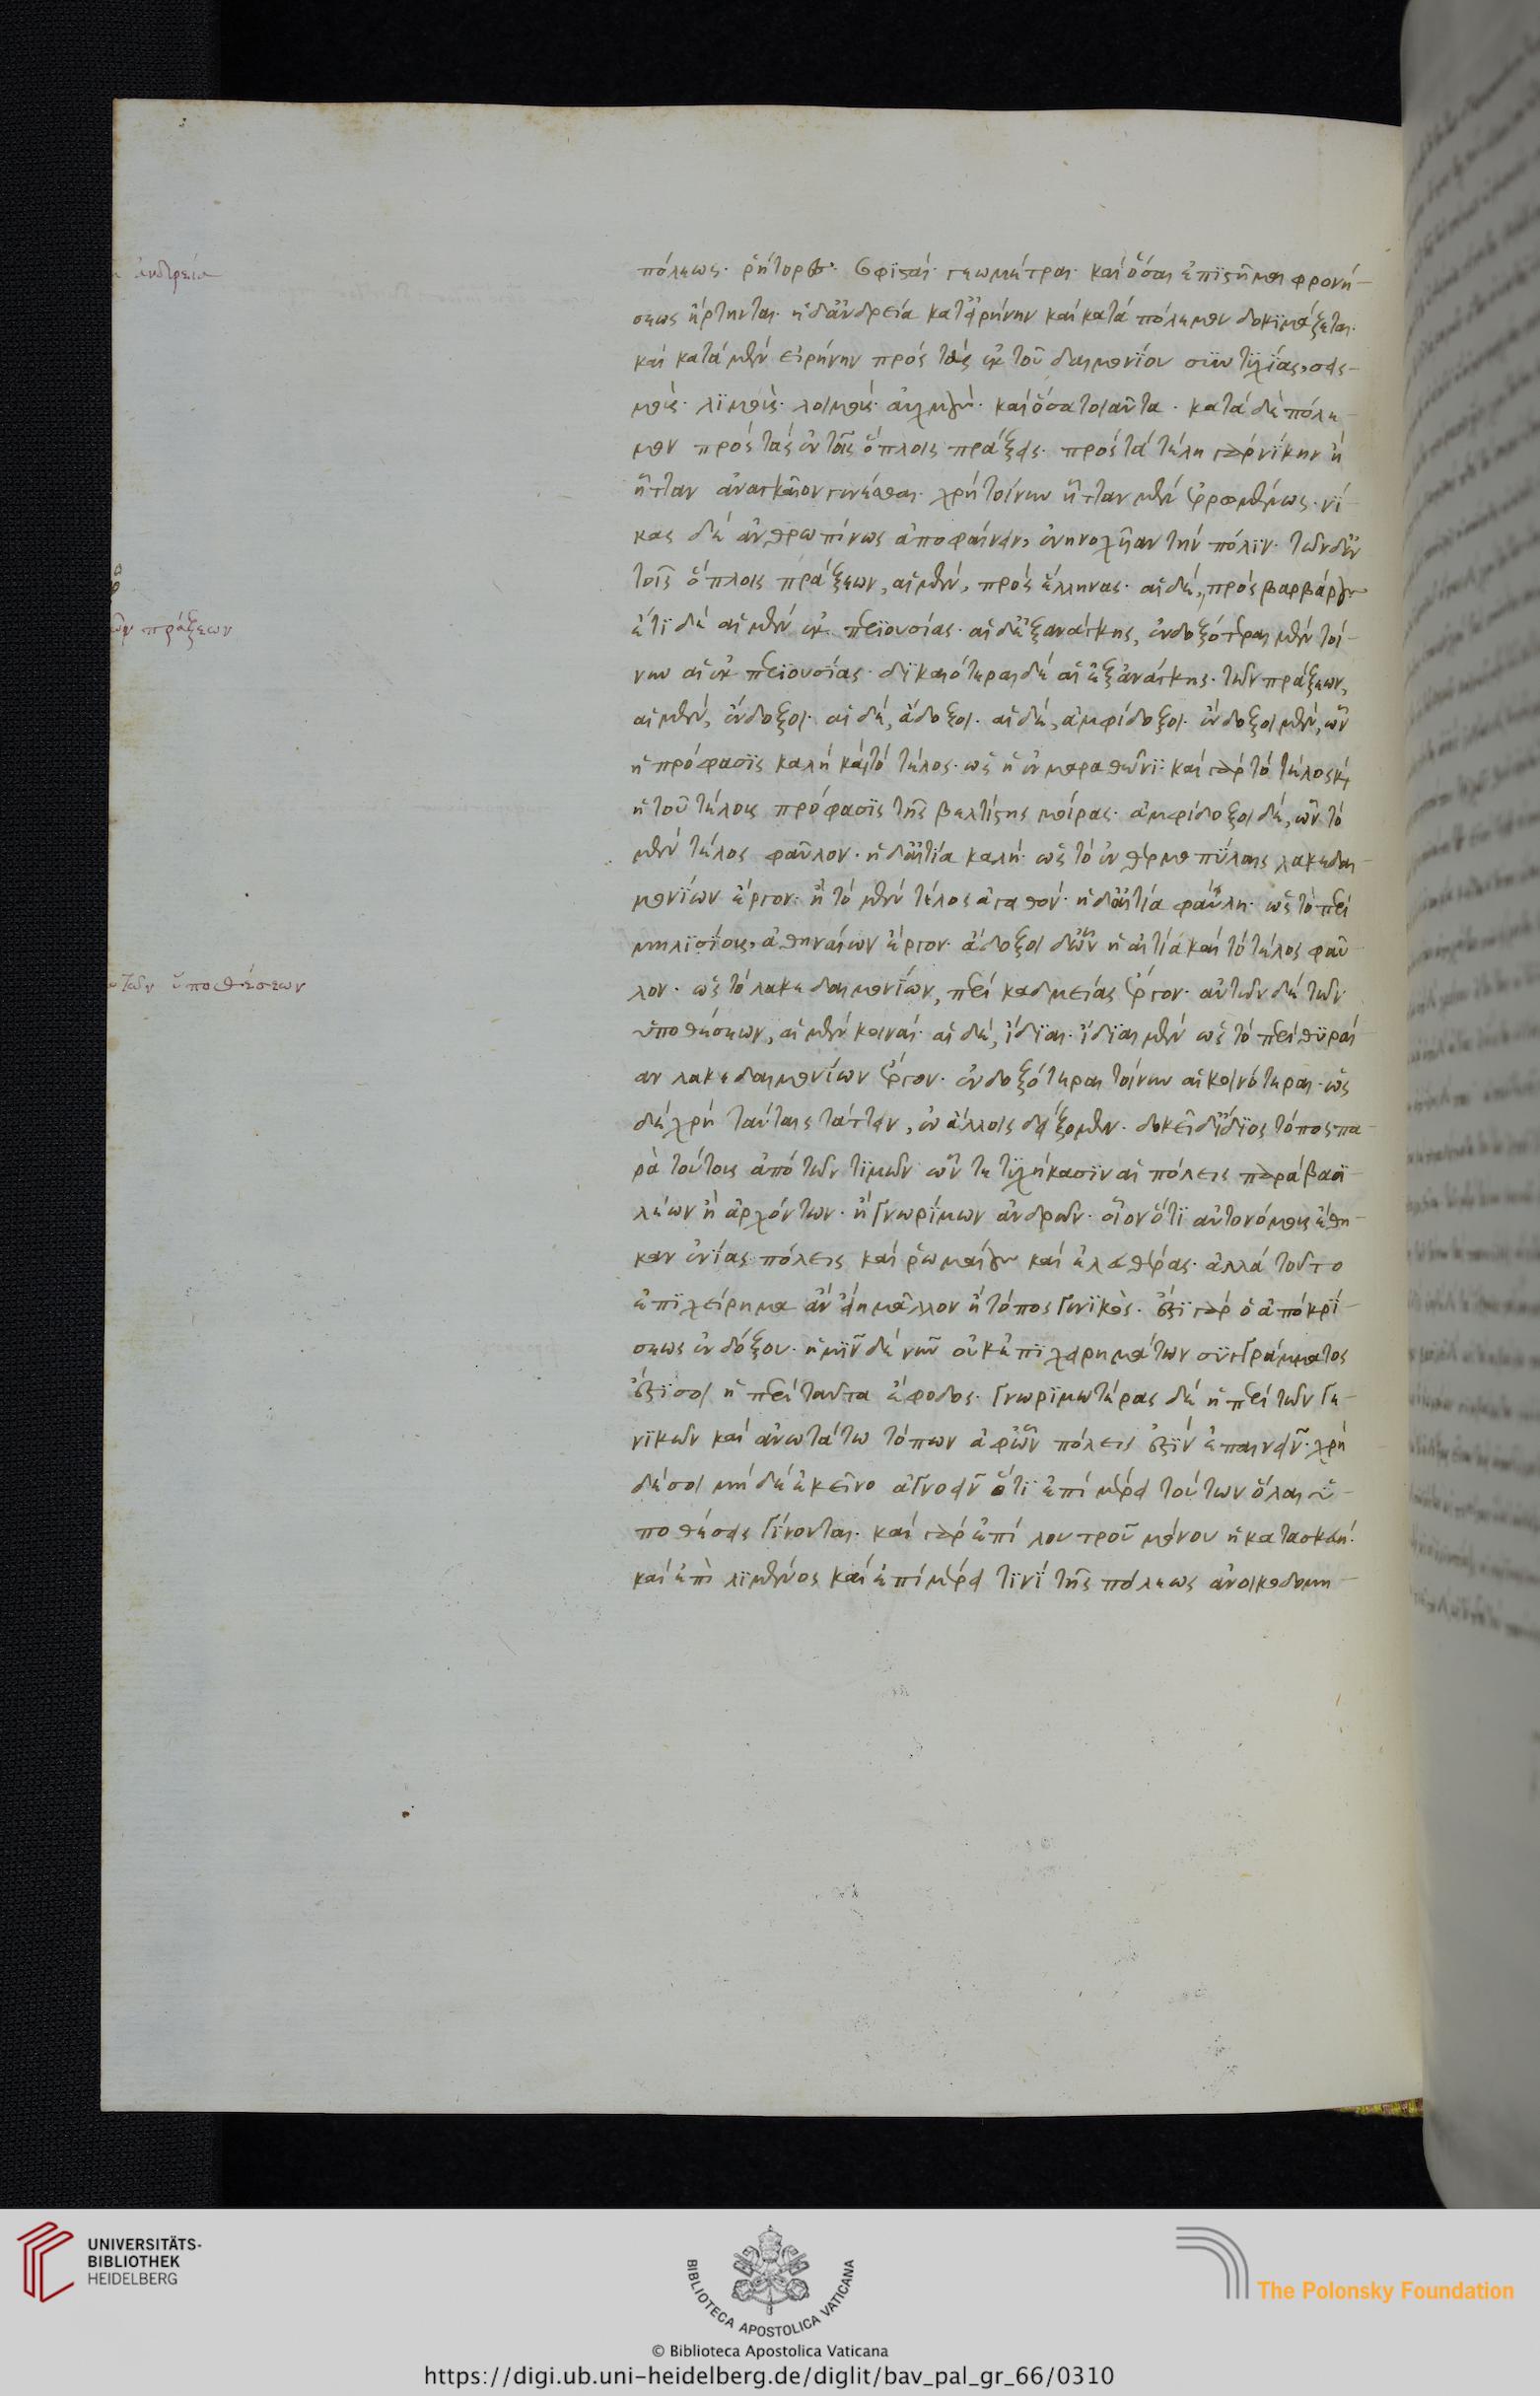 ἀνδρεία
πόλεως· ῥήτορες· σοφϊσταί· γεωμέτραι· καὶ ὅσαι ἐπιστῆμαι φρονή-
σεως ἤρτηνται· ἡ δ' ἀνδρεία κατ' εἰρήνην καὶ κατὰ πόλεμον δοκϊμάζεται·
καὶ κατὰ μὲν εἰρήνην πρὸς τὰς ἐκ τοῦ δαιμονίου συντυχίας, σεισ-
μοὺς· λϊμοὺς· λοιμοὺς· αὐχμοὺς· καὶ ὅσα τοιαῦτα· κατὰ δὲ πόλε-
μον πρὸς τὰς ἐν τοῖς ὅπλοις πράξεις· πρὸς τὰ τέλη γὰρ νίκην ἢ
ἧτταν ἀναγκαῖον γενέσθαι· χρὴ τοίνυν ἧτταν μὲν ἐρρωμένως· νί-
κας δὲ ἀνθρωπίνως ἀποφαίνειν, ἐνηνοχῆαν τὴν πόλϊν· τῶν δ' ἐν
τοῖς ὅπλοις πράξεων, αἱ μὲν, πρὸς ἕλληνας· αἱ δὲ, πρὸς βαρβάρους
ῶν πράξεων
ἔτϊ δὲ αἱ μὲν ἐκ περϊουσίας· αἱ δ' ἐξ ἀνάγκης, ἐνδοξότεραι μὲν τοί-
νυν αἱ ἐκ περϊουσϊας· δϊκαιότεραι δὲ αἱ ἐξ ἀνάγκης· τῶν πράξεων,
αἱ μὲν, ἔνδοξοι· αἱ δὲ, ἄδοξοι· αἱ δὲ, ἀμφίδοξοι· ἔνδοξοι μὲν, ὧν
ἡ πρόφασϊς καλὴ καὶ τὸ τέλος· ὡς ἡ ἐν μαραθῶνϊ· καὶ γὰρ τὸ τέλος καὶ
ἡ τοῦ τέλους πρόφασϊς τῆς βελτίστης μοίρας· ἀμφίδοξοι δὲ, ὧν τὸ
μὲν τέλος φαῦλον· ἡ δ' αἰτία καλὴ· ὡς τὸ ἐν θερμοπύλαις λακεδαι-
μονϊων ἔργον· ἢ τὸ μὲν τέλος ἀγαθὸν· ἡ δ' αἰτία φαύλη· ὡς τὸ περὶ
μηλϊσϊους, ἀθηναίων ἔργον· ἄδοξοι δ' ὧν ἡ αἰτία καὶ τὸ τέλος φαῦ-
τῶν ὑποθέσεων
λον· ὡς τὸ λακεδαιμονίων, περὶ καδμείας ἔργον· αὐτῶν δὲ τῶν
ὑποθέσεων, αἱ μὲν κοιναὶ· αἱ δὲ, ἴδϊαι· ἴδϊαι μὲν ὡς τὸ περὶ θϋραί-
αν λακεδαιμονίων ἔργον· ἐνδοξότεραι τοίνυν αἱ κοινότεραι· ὡς
δὲ χρὴ ταύταις τάττειν, ἐν ἄλλοις δείξομεν· δοκεῖ δ' ἴδϊος τόπος πα-
ρὰ τούτους ἀπὸ τῶν τϊμῶν ὧν τετϋχήκασϊν αἱ πόλεις παρὰ βασϊ-
λέων ἢ ἀρχόντων· ἢ γνωρίμων ἀνδρῶν· οἷον ὅτϊ αὐτονόμους ἔθη-
καν ἐνίας πόλεις καὶ ῥωμαίους καὶ ἐλευθέρας· ἀλλὰ τοῦτο
ἐπϊχείρημα ἂν εἴη μᾶλλον ἢ τόπος γενϊκὸς· ἔστϊ γὰρ ὁ ἀπὸ κρί-
σεως ἐνδόξου· ἡμῖν δὲ νῦν οὐκ ἐπϊχειρημάτων σϋγγράμματος
ἔστϊ σοι ἡ περὶ ταῦτα ἔφοδος· γνωρϊμωτέρας δὲ ἡ περὶ τῶν γε-
νϊκῶν καὶ ἀνωτάτω τόπων ἀφ' ὧν πόλεις ἔστϊν ἐπαινεῖν· χρὴ
δέ σοι μὴ δὲ ἐκεῖνο ἀγνοεῖν ὅτϊ ἐπὶ μέρει τούτων ὅλαι ὑ-
ποθέσεις γίνονται· καὶ γὰρ ἐπὶ λουτροῦ μόνου ἡ κατασκευὴ·
καὶ ἐπὶ λϊμένος καὶ ἐπὶ μέρει τϊνὶ τῆς πόλεως ἀνοικοδομη-
UNIVERSITÄTS-
BIBLIOTHEK
HEIDELBERG
BIBLIOTECA APOSTOLICA VATICANA
The Polonsky Foundation
© Biblioteca Apostolica Vaticana
https://digi.ub.uni-heidelberg.de/diglit/bav_pal_gr_66/0310